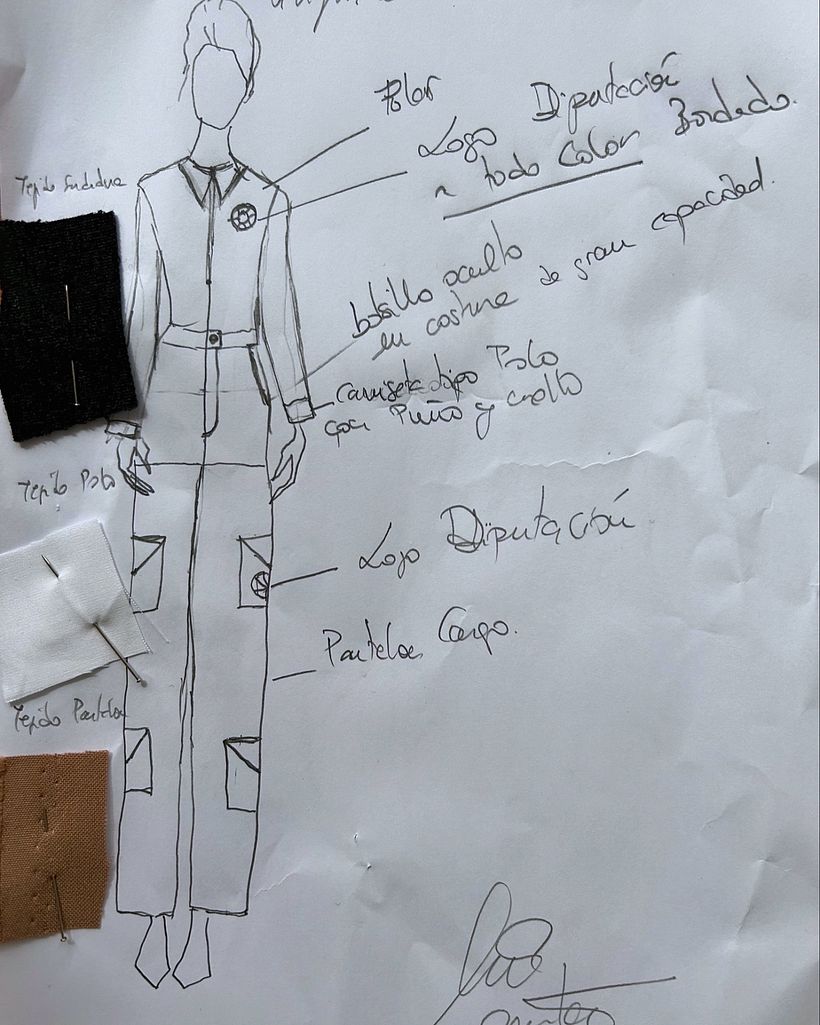 Polar
Logo Diputación
a todo Color Bordado.
Tejido Sudadera
bolsillo oculto
en costura de gran capacidad.
Camiseta tipo Polo
con Puño y cuello
Tejido Polo
Logo Diputación
Pantalon Cargo.
Tejido Pantalon